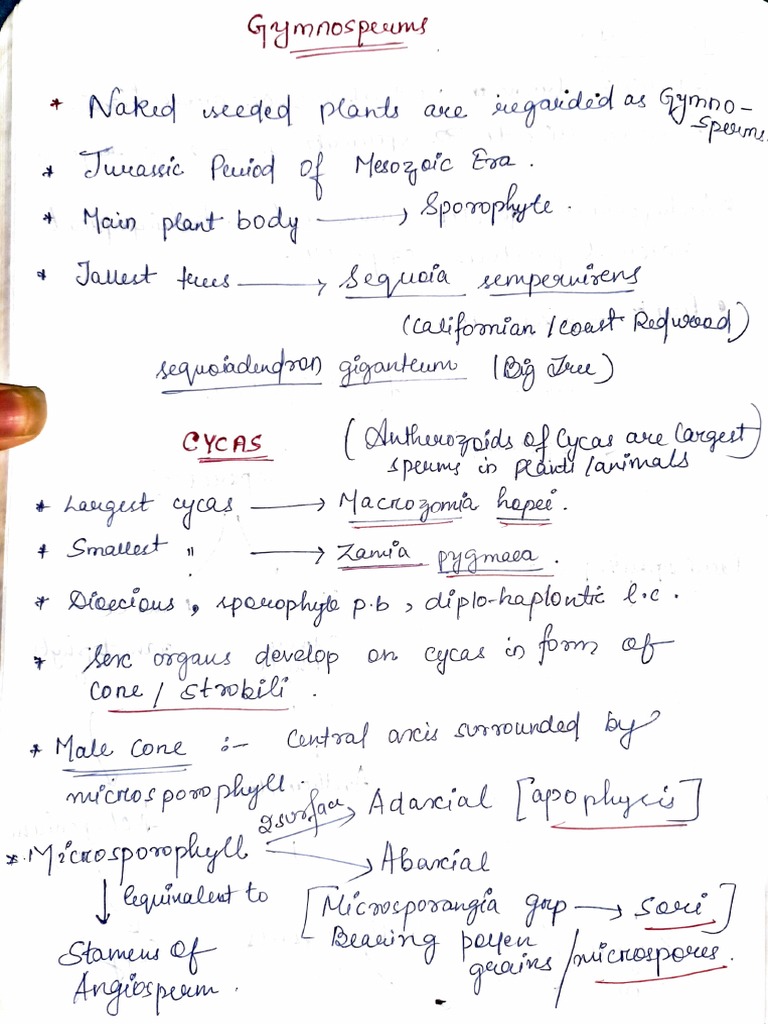 Gymnosperms
* Naked seeded plants are regarded as Gymno-
sperms.
* Jurassic Period of Mesozoic Era.
* Main plant body → Sporophyte.
* Tallest trees → Sequoia sempervirens
(Californian / Coast Redwood)
sequoiadendron giganteum (Big Tree)
CYCAS (Antherozoids of Cycas are largest)
sperms in plants/animals
* Largest cycas → Macrozomia hopei.
* Smallest " → Zamia pygmaea.
* Dioecious, sporophyte p.b, diplo-haplontic l.c.
* Sex organs develop on cycas in form of
cone / strobili.
* Male cone :- Central axis surrounded by
microsporophyll.
2 surface → Adaxial [apophycis]
* Microsporophyll → Abaxial
↓ equivalent to [Microsporangia grp → sori]
Bearing pollen
Stamens of grains / microspores.
Angiosperm.